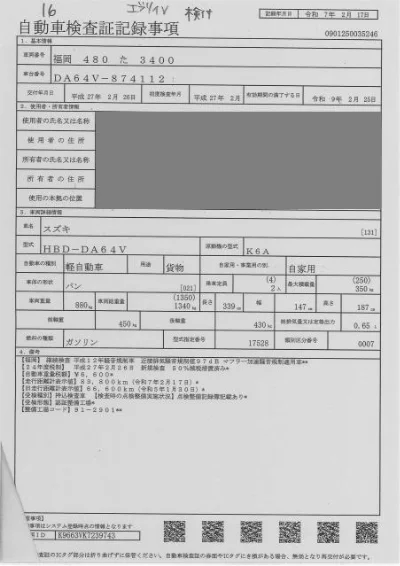 16 エブリイV 検付
記録年月日 令和 7年 2月17日
自動車検査証記録事項
0901250035246
1. 基本情報
車両番号 福岡 480 た 3400
車台番号 DA64V-874112
交付年月日 平成27年 2月26日 初度検査年月 平成27年 2月 有効期間の満了する日 令和 9年 2月25日
2. 使用者・所有者情報
使用者の氏名又は名称
使用者の住所
所有者の氏名又は名称
所有者の住所
使用の本拠の位置
3. 車両詳細情報
車名 スズキ [131]
型式 HBD-DA64V 原動機の型式 K6A
自動車の種別 軽自動車 用途 貨物 自家用・事業用の別 自家用
車体の形状 バン [021] 乗車定員 (4) 2人 最大積載量 (250) 350kg
車両重量 880kg 車両総重量 (1350) 1340kg 長さ 339cm 幅 147cm 高さ 187cm
前軸重 450kg 後軸重 430kg 総排気量又は定格出力 0.65L
燃料の種類 ガソリン 型式指定番号 17528 類別区分番号 0007
4. 備考
[福岡] 継続検査 平成12年騒音規制車 近接排気騒音規制値97dB マフラー加速騒音規制適用車**
[24年度税制] 平成27年2月26日 新規検査 50%減税措置済み*
[自動車重量税額] ¥6,600*
[受検種別] 持込検査車 [検査時の点検整備実施状況] 点検整備記録簿記載あり*
[受検形態] 認証整備工場*
[整備工場コード] 91-2901**
事項はシステム登録時点の情報となります
K9663VK7239743
査証のICタグ部分は折り曲げずに保管ください。自動車検査証の券面やICタグにき損がある場合、無効となり再交付が必要です。